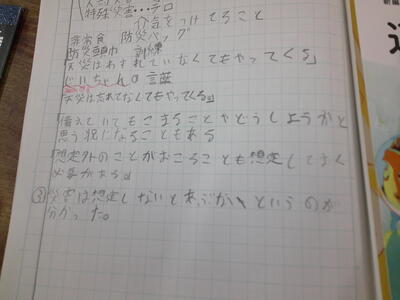 特殊災害…テロ
気をつけてること
非常食 防災バッグ
防災頭巾 訓練
天災はわすれていなくてもやってくる」
じいちゃんの言葉
天災は忘れてなくてもやってくる」
備えていてもこまることやどうしようかと
思う状になることもある
想定外のことがおこることも想定しておく
必要がある。
③災害は想定しないとあぶないというのが
分かった。